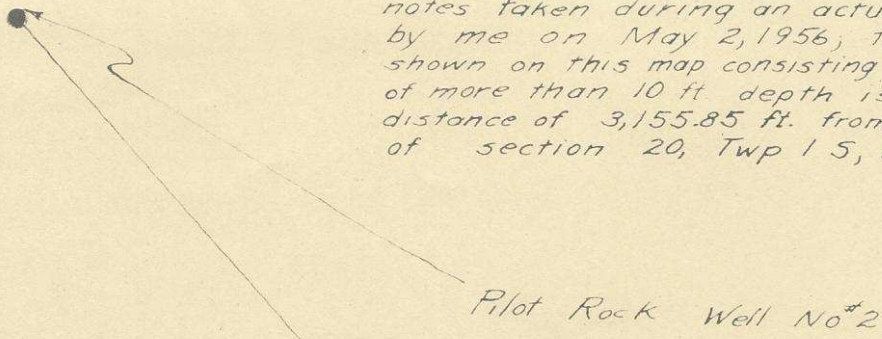 notes taken during an actu
by me on May 2, 1956; t
shown on this map consisting
of more than 10 ft. depth is
distance of 3,155.85 ft. from
of section 20, Twp 1 S,
Pilot Rock Well No#2